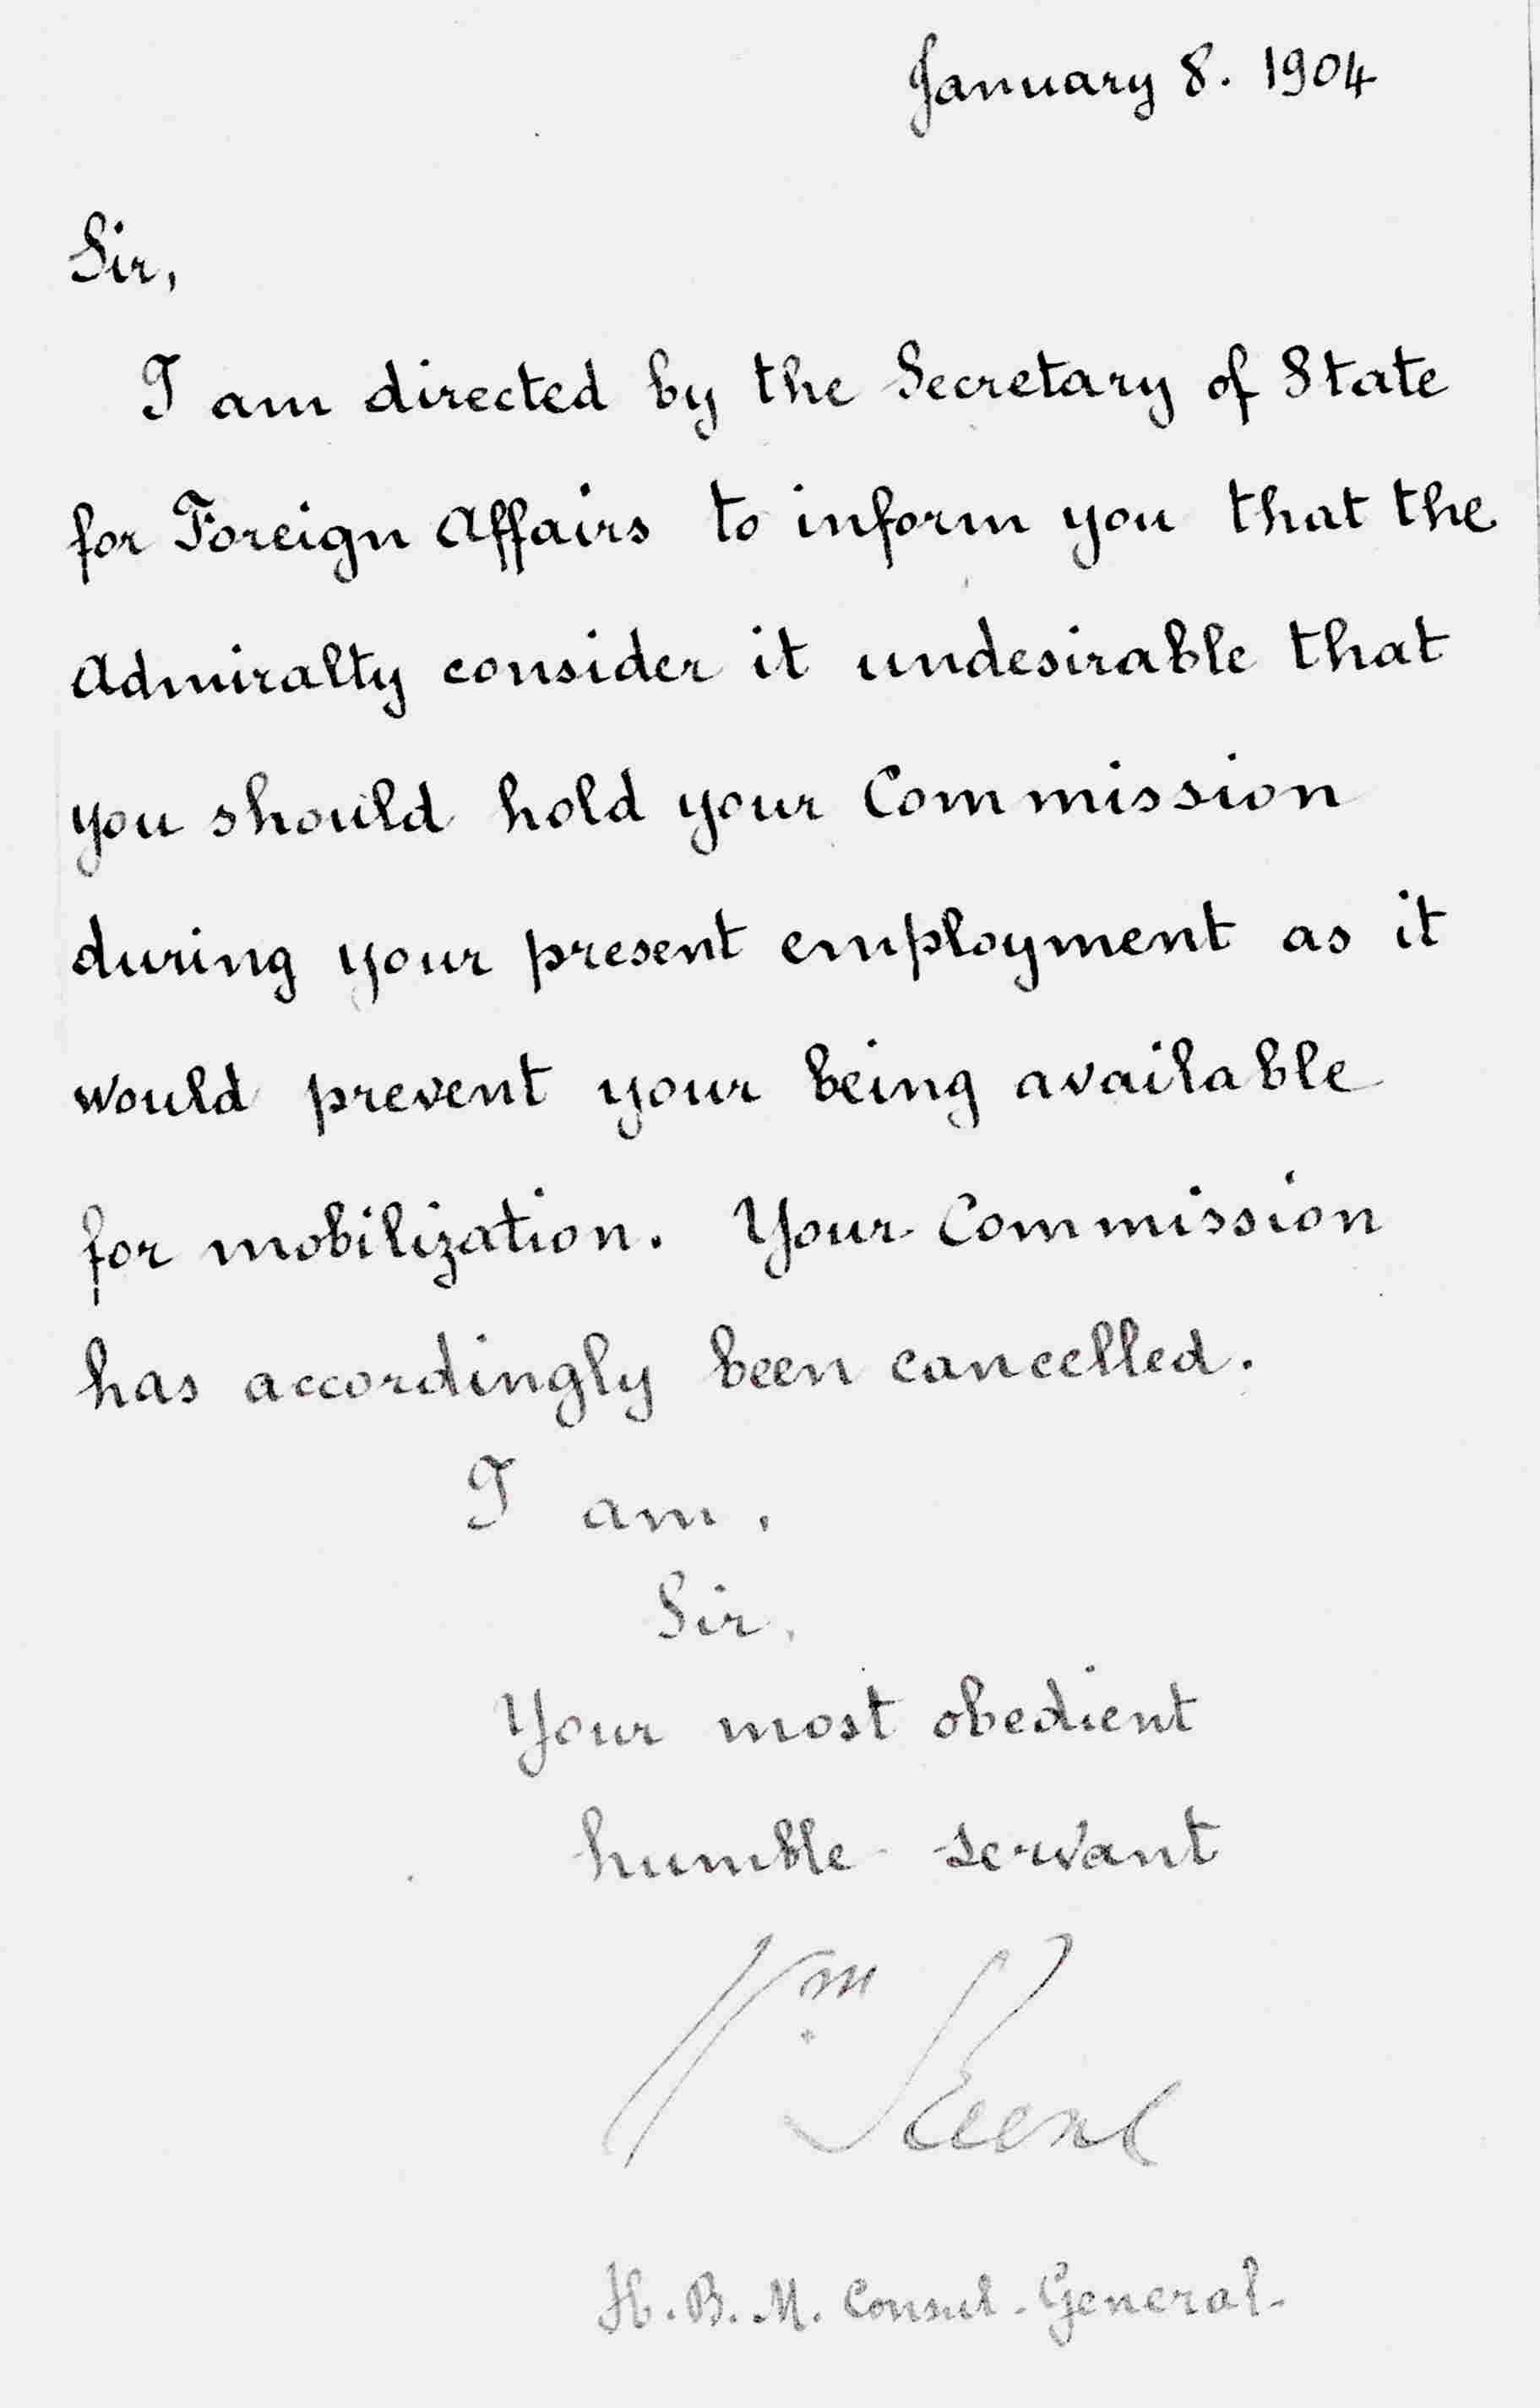 January 8. 1904
Sir,
I am directed by the Secretary of State
for Foreign Affairs to inform you that the
Admiralty consider it undesirable that
you should hold your Commission
during your present employment as it
would prevent your being available
for mobilization. Your Commission
has accordingly been cancelled.
I am,
Sir,
Your most obedient
humble servant
Wm
H. B. M. Consul-General.